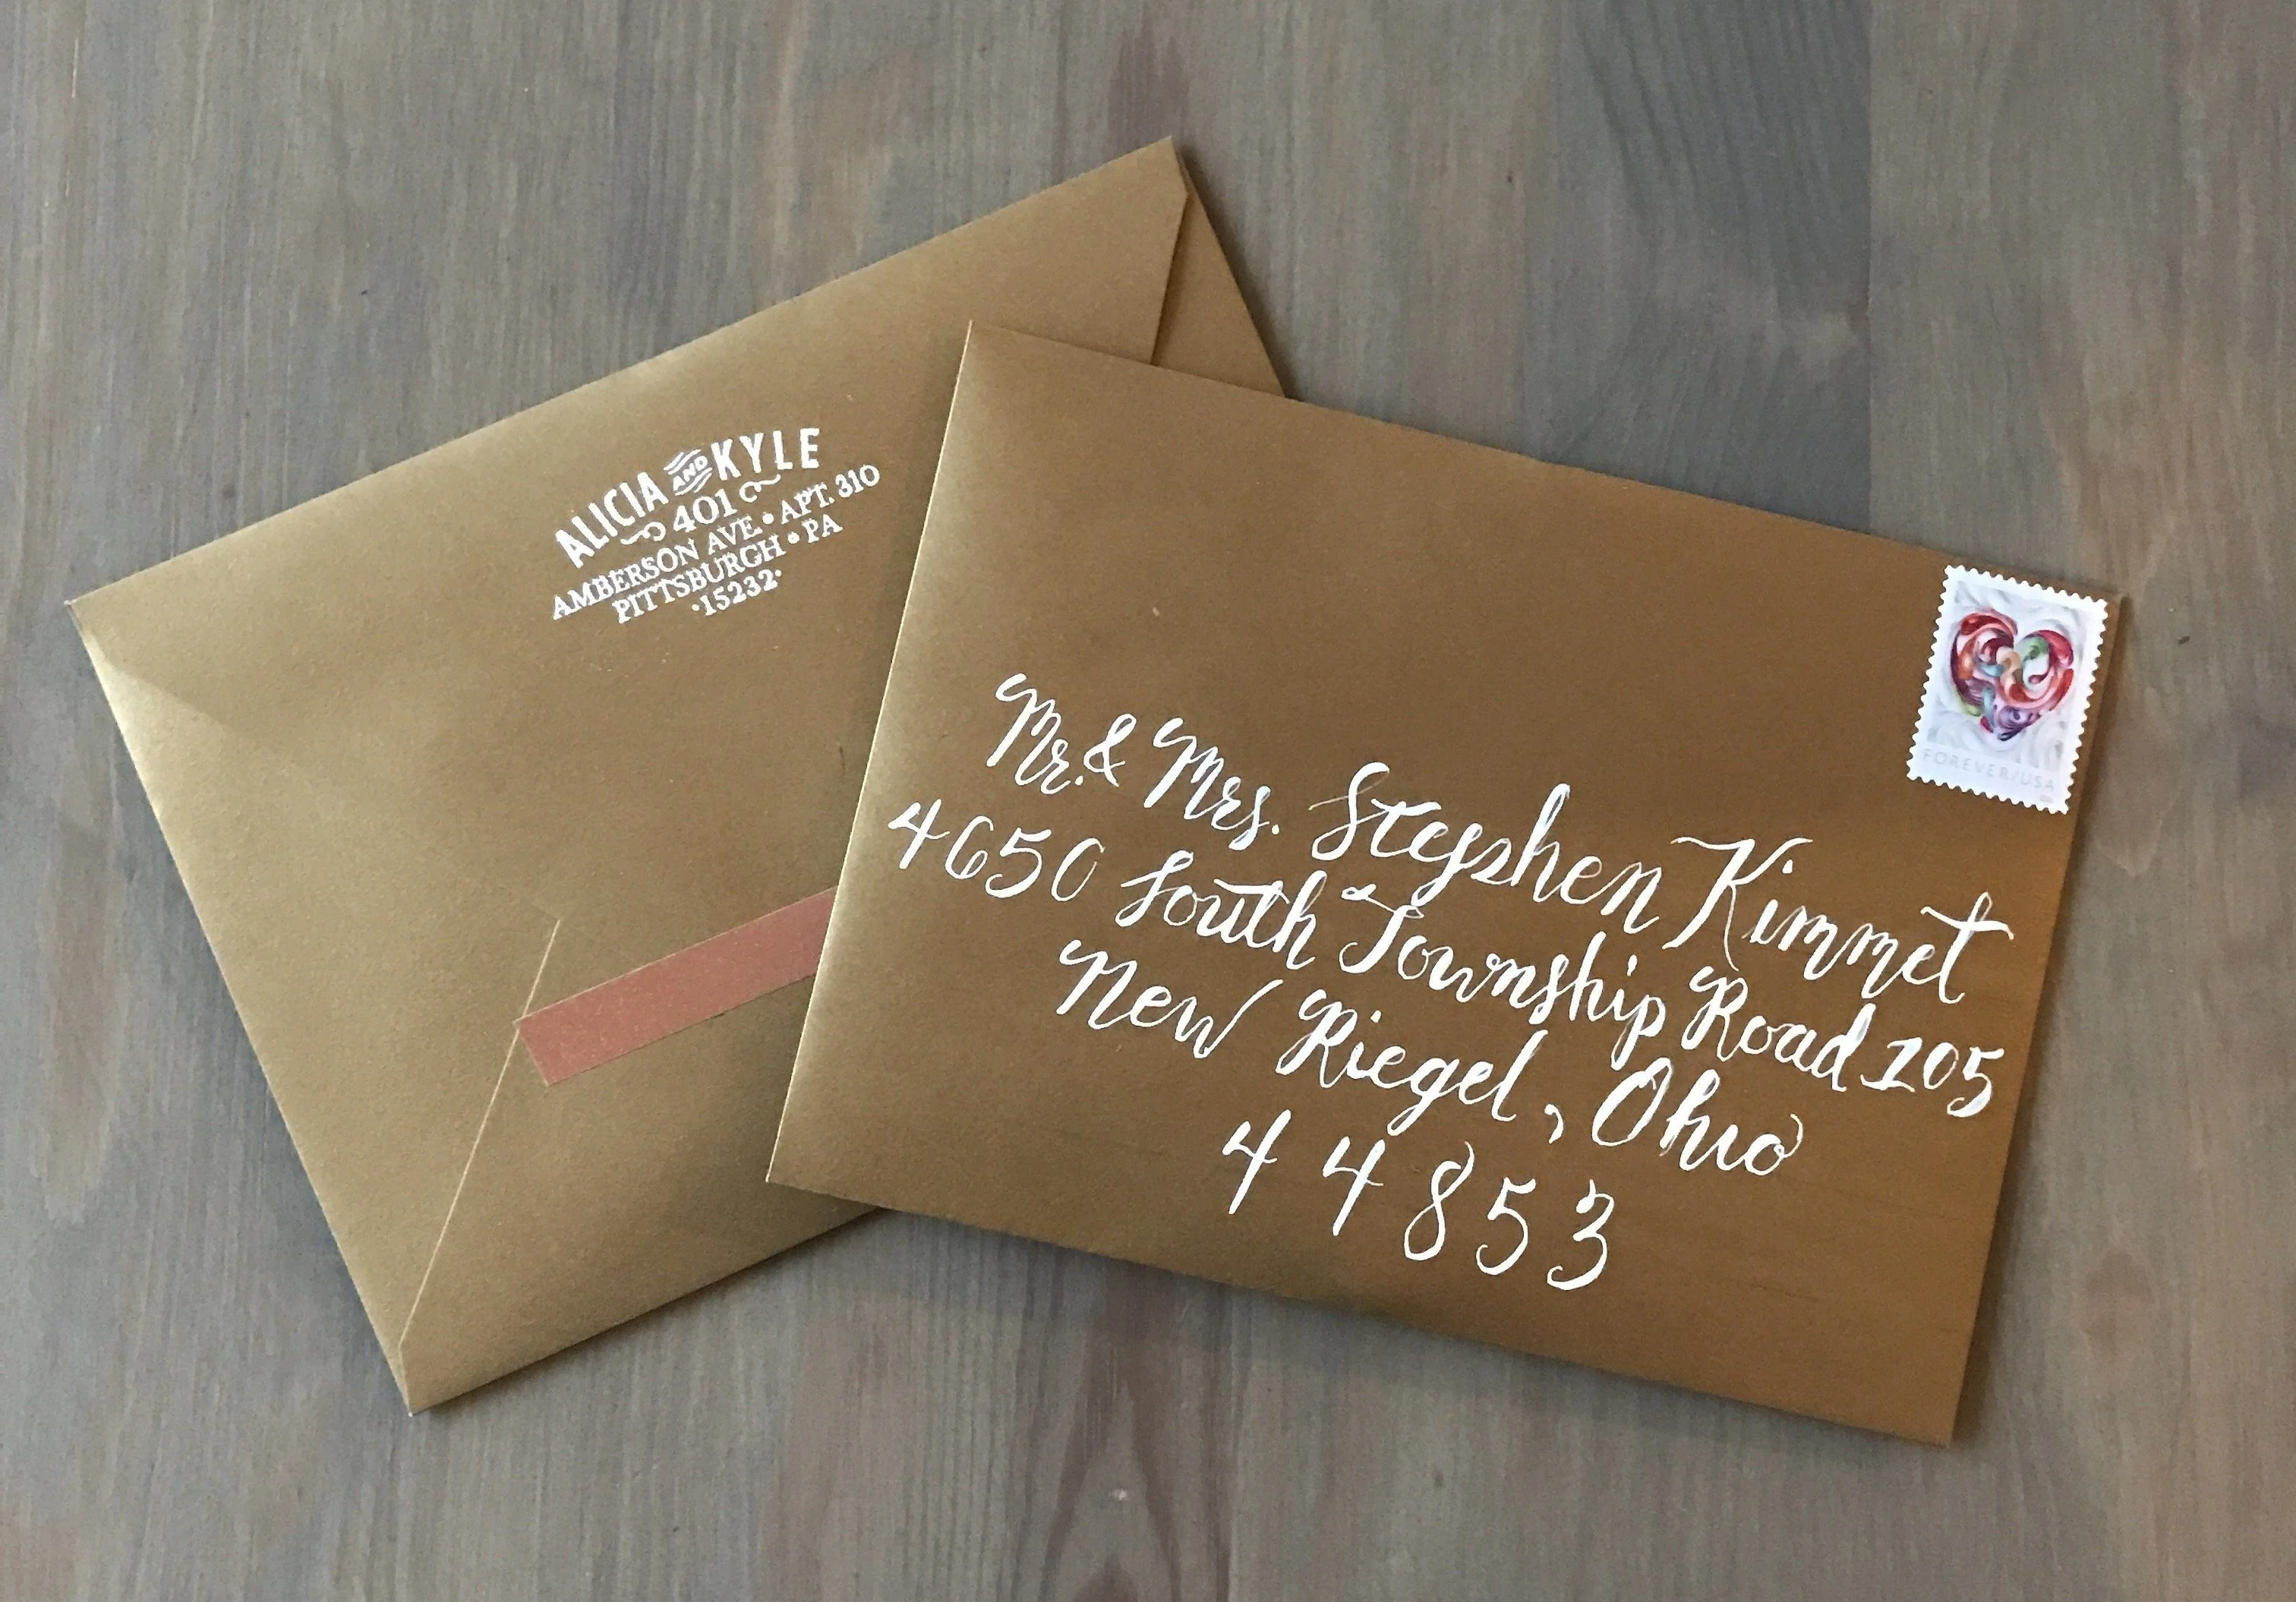 ALICIA AND KYLE
401
AMBERSON AVE • APT. 310
PITTSBURGH • PA
•15232•
Mr. & Mrs. Stephen Kimmet
4650 South Township Road 105
New Riegel, Ohio
44853
FOREVER/USA